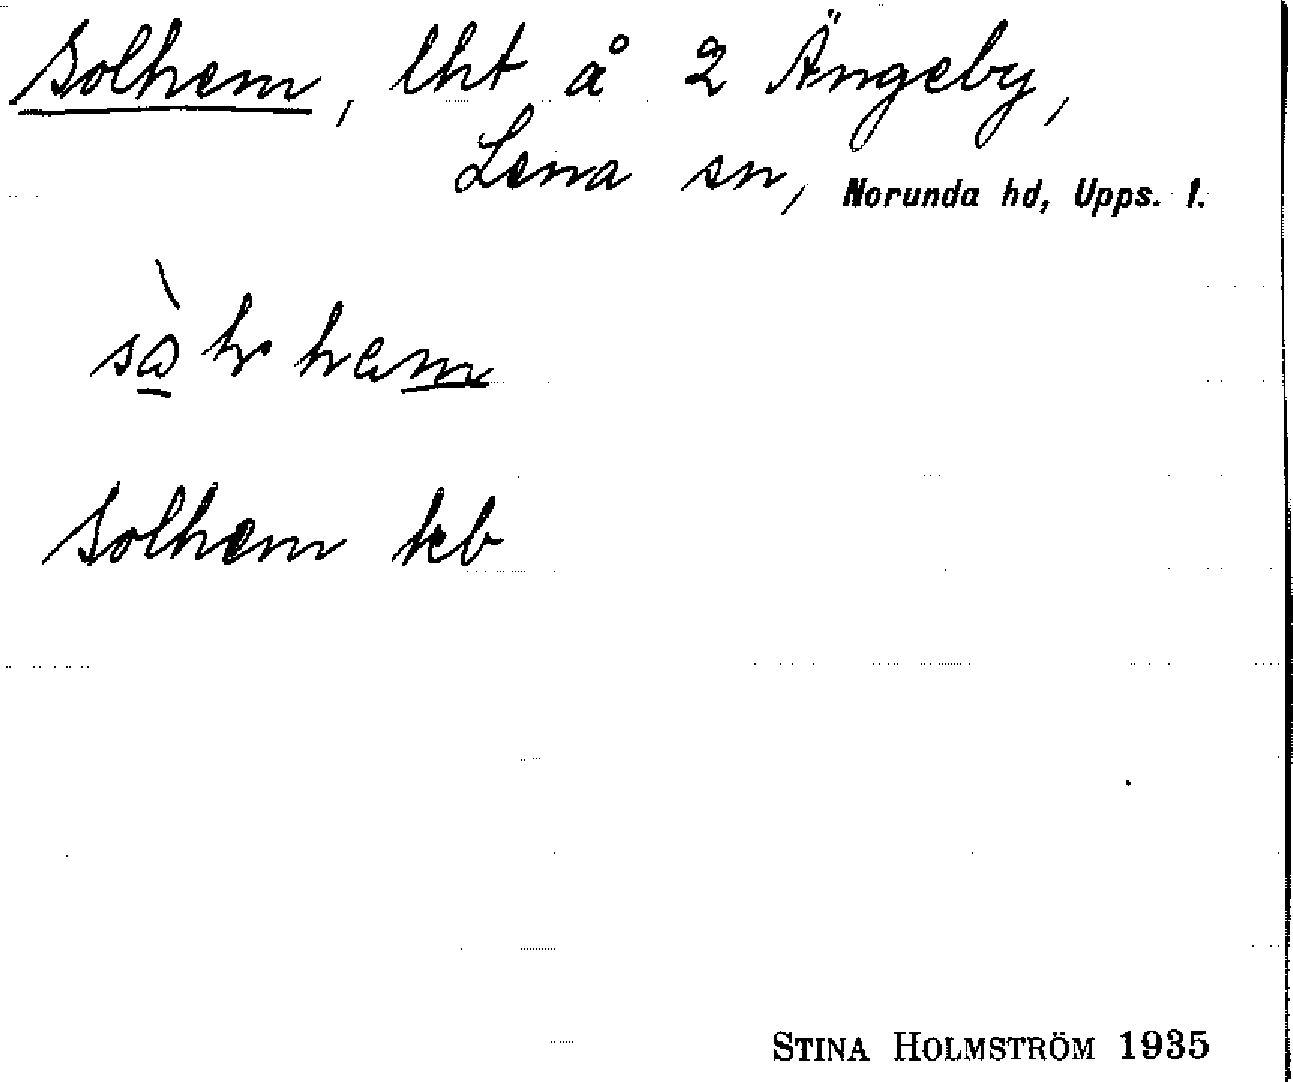 Solhem, lht å 2 Ängeby,
Lena sn, Norunda hd, Upps. l.
Solhem kb
STINA HOLMSTRÖM 1935